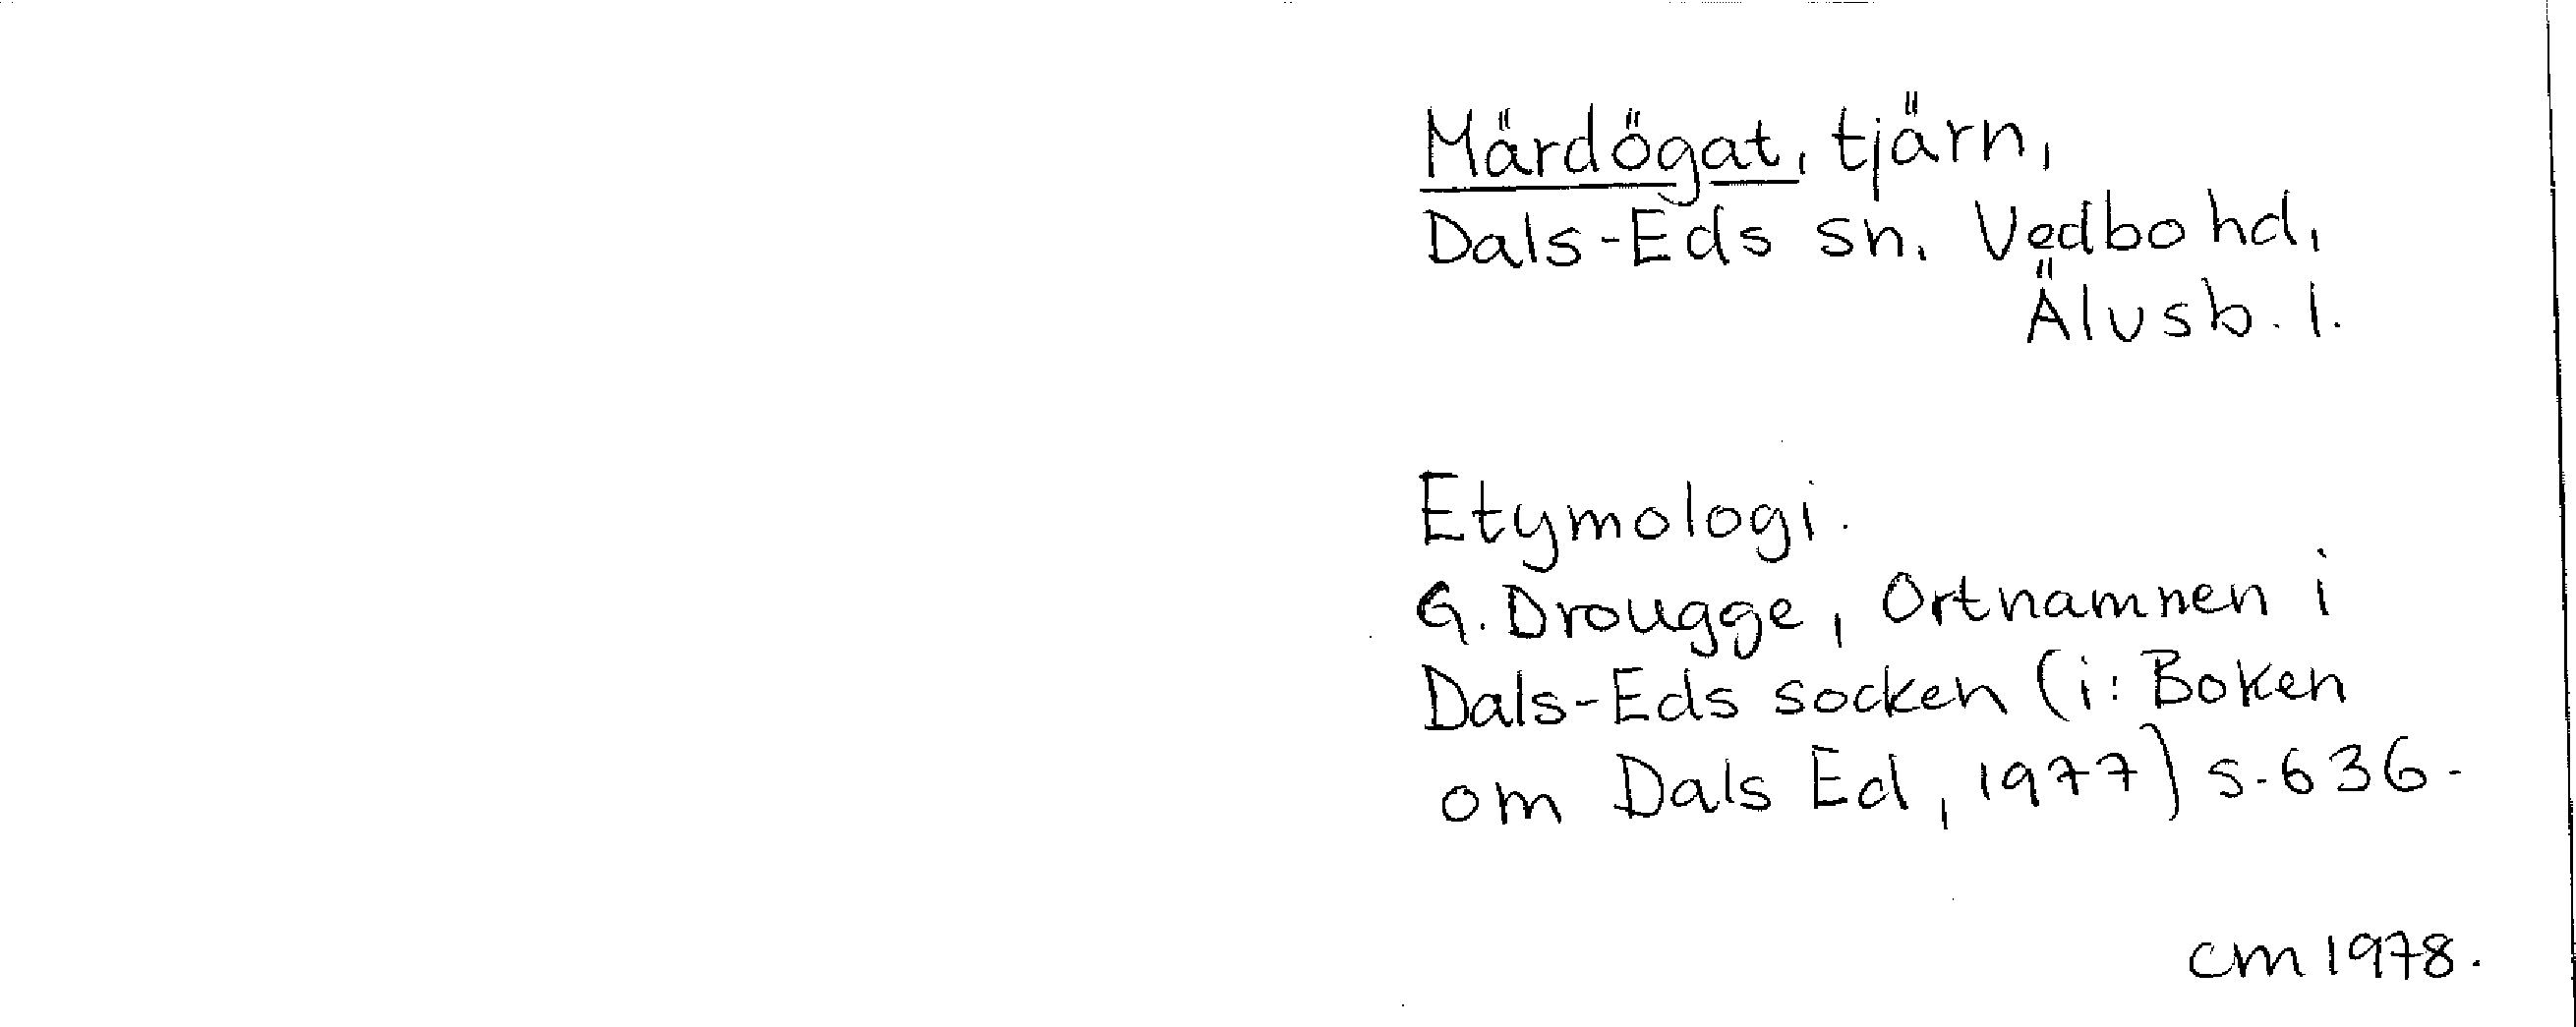 Märdögat, tjärn,
Dals-Eds sn. Vedbo hd,
Älvsb. l.
Etymologi.
G. Drougge, Ortnamnen i
Dals-Eds socken (i: Boken
om Dals Ed, 1977) s. 636.
cm 1978.